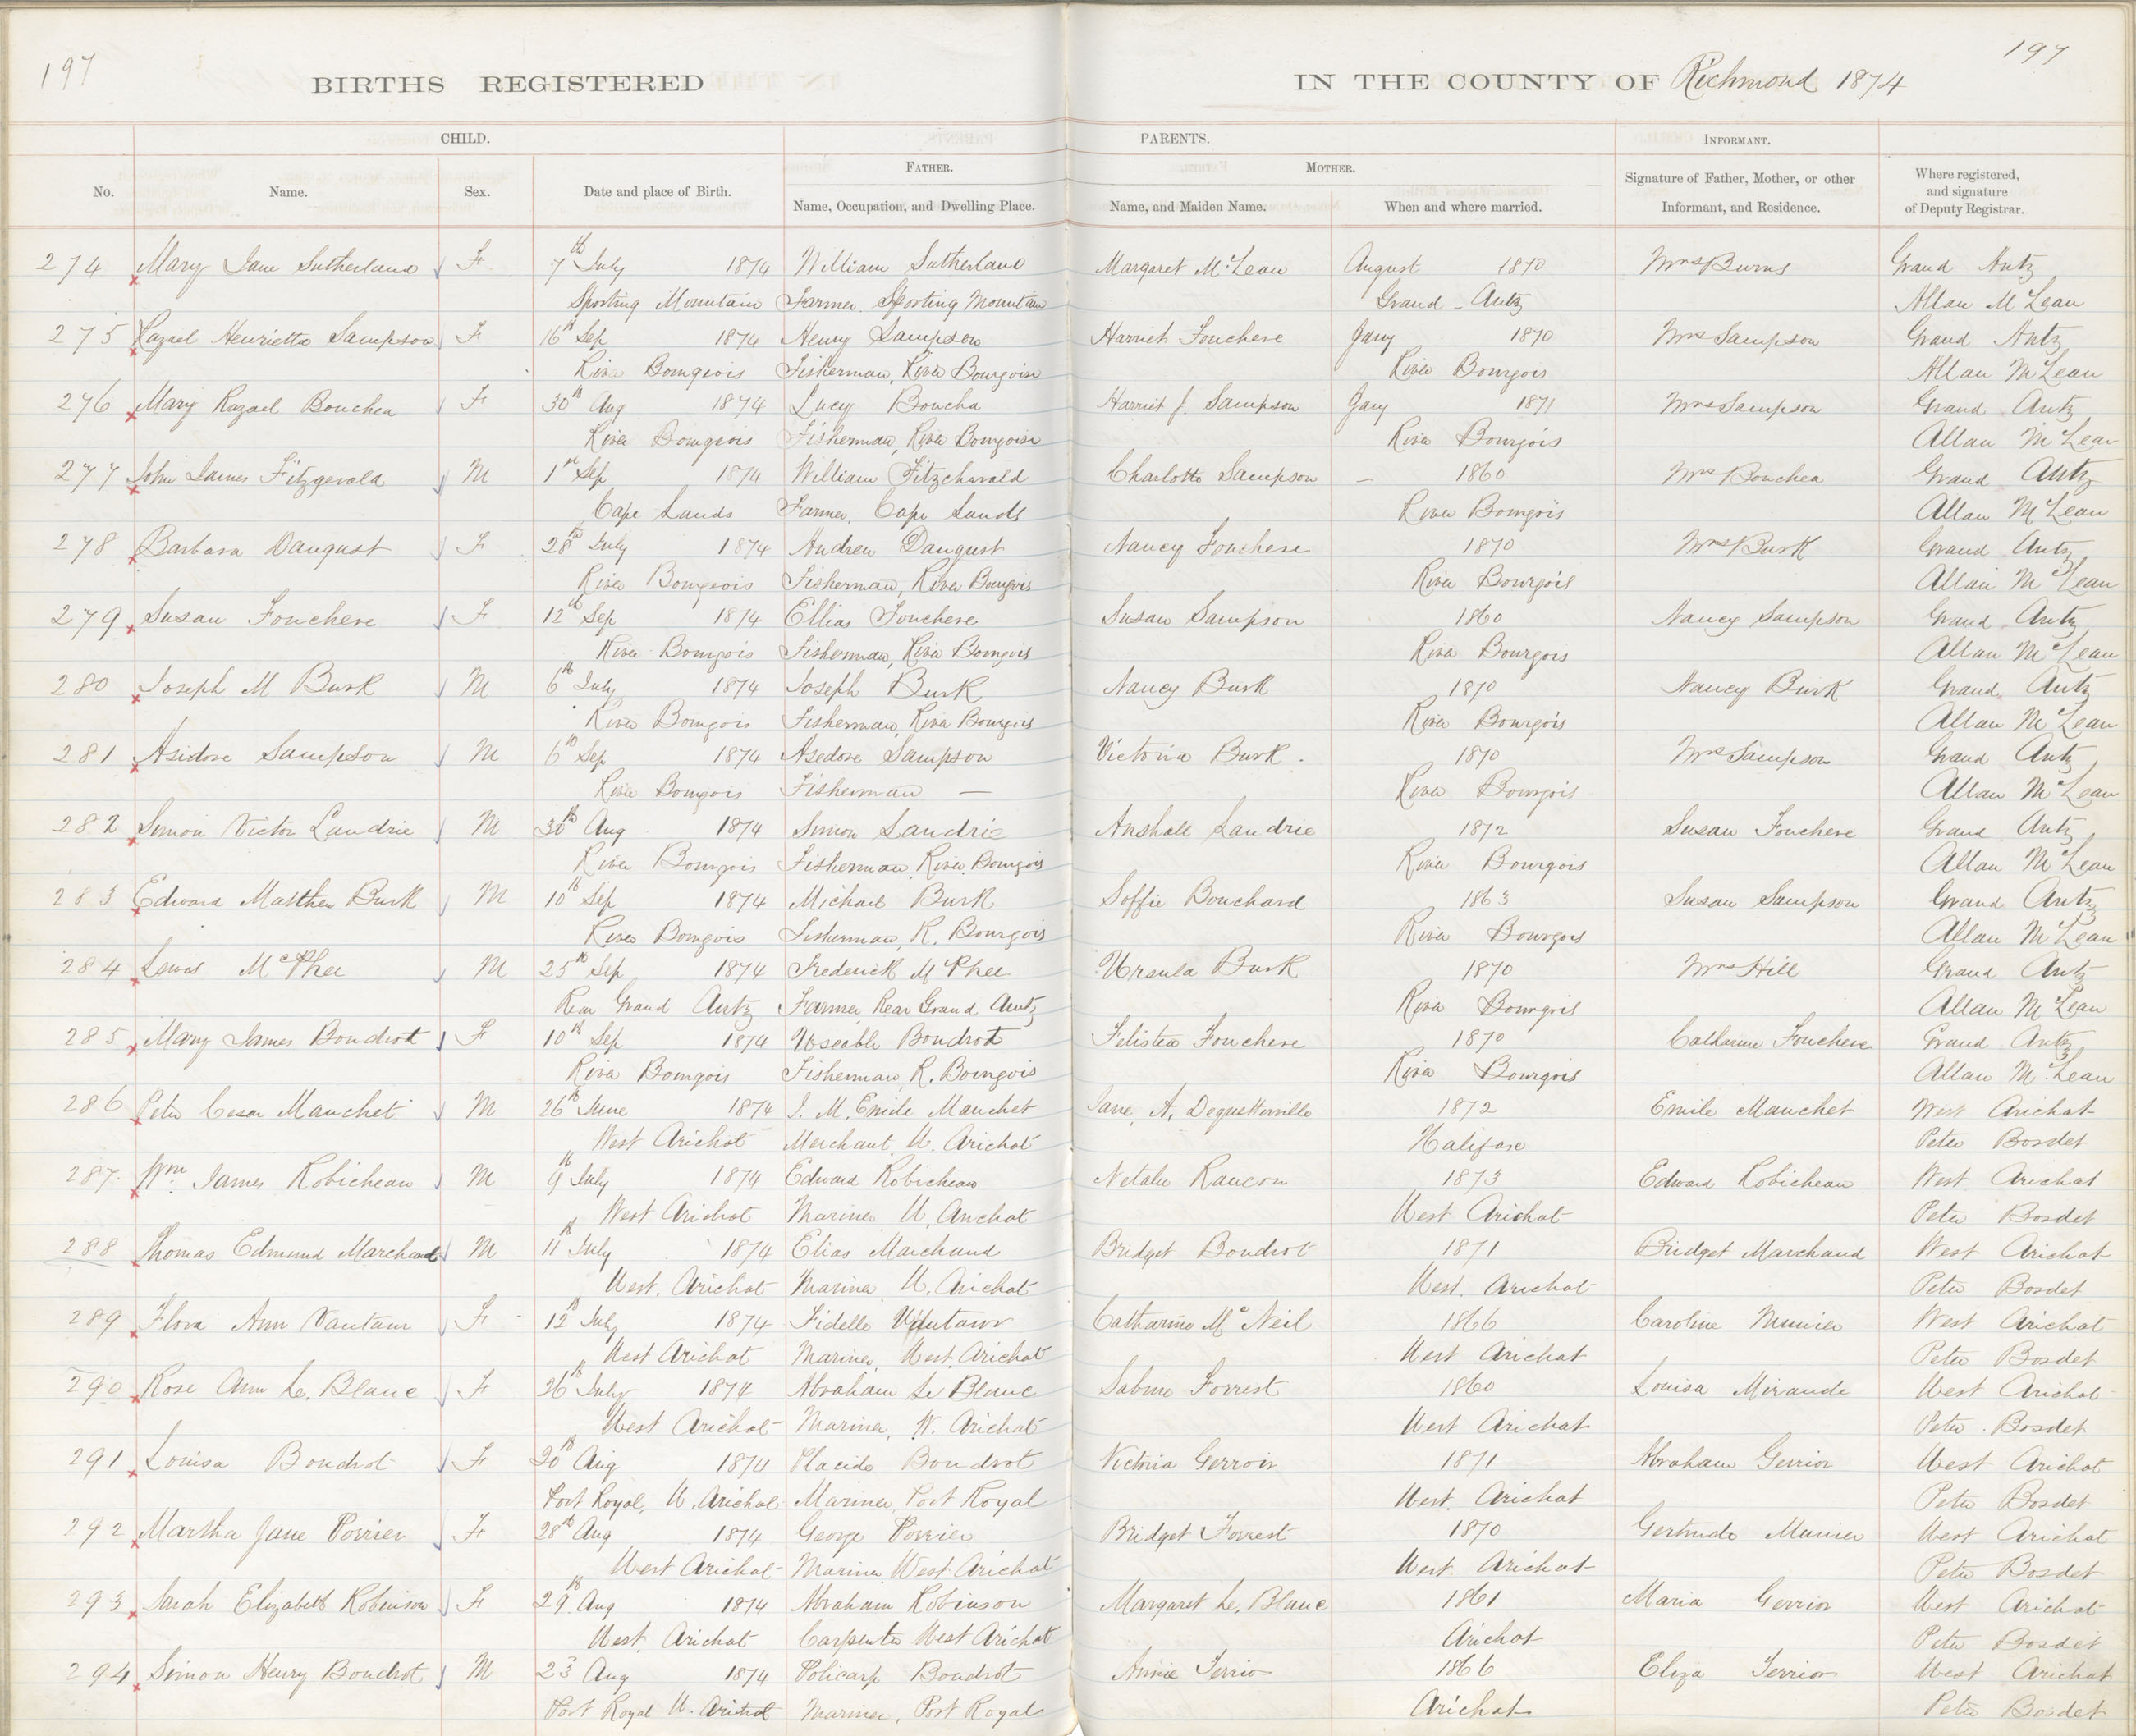 197
197
BIRTHS REGISTERED IN THE COUNTY OF Richmond 1874
CHILD. PARENTS. INFORMANT.
FATHER. MOTHER.
No. Name. Sex. Date and place of Birth. Name, Occupation, and Dwelling Place. Name, and Maiden Name. When and where married. Signature of Father, Mother, or other Informant, and Residence. Where registered, and signature of Deputy Registrar.
274 Mary Jane Sutherland F 7th July 1874 William Sutherland Margaret McLean August 1870 Mrs Burns Grand Antz
Sporting Mountain Farmer Sporting Mountain Grand - Antz Allan McLean
275 Razael Henrietta Sampson F 16th Sep 1874 Henry Sampson Harriet Fouchere Jany 1870 Mrs Sampson Grand Antz
River Bourgeois Fisherman, River Bourgois River Bourgois Allan McLean
276 Mary Razael Bouchea F 30th Aug 1874 Lucy Boucha Harriet J. Sampson Jany 1871 Mrs Sampson Grand Antz
River Bourgeois Fisherman, River Bourgois River Bourgois Allan McLean
277 John James Fitzgerald M 1st Sep 1874 William Fitzcharald Charlotte Sampson - 1860 Mrs Bouchea Grand Antz
Cape Lands Farmer, Cape Lands River Bourgois Allan McLean
278 Barbara Daugust F 28th July 1874 Andrew Daugust Nancy Fouchere 1870 Mrs Burk Grand Antz
River Bourgeois Fisherman, River Bourgois River Bourgois Allan McLean
279 Susan Fouchere F 12th Sep 1874 Ellias Fouchere Susan Sampson 1860 Nancy Sampson Grand Antz
River Bourgois Fisherman, River Bourgois River Bourgois Allan McLean
280 Joseph M Burk M 6th July 1874 Joseph Burk Nancy Burk 1870 Nancy Burk Grand Antz
River Bourgois Fisherman, River Bourgois River Bourgois Allan McLean
281 Asidore Sampson M 6th Sep 1874 Asedore Sampson Victoria Burk. 1870 Mrs Sampson Grand Antz
River Bourgois Fisherman — River Bourgois Allan McLean
282 Simon Victor Landrie M 30th Aug 1874 Simon Landrie Anshell Landrie 1872 Susan Fouchere Grand Antz
River Bourgois Fisherman, River Bourgois River Bourgois Allan McLean
283 Edward Matthew Burk M 10th Sep 1874 Michael Burk Soffie Bouchard 1863 Susan Sampson Grand Antz
River Bourgois Fisherman, R. Bourgois River Bourgois Allan McLean
284 Lewis McPhee M 25th Sep 1874 Frederick McPhee Ursula Burk 1870 Mrs Hill Grand Antz
Rear Grand Antz Farmer Rear Grand Antz River Bourgois Allan McLean
285 Mary James Boudrot F 10th Sep 1874 Useable Boudrot Felistea Fouchere 1870 Catharine Fouchere Grand Antz
River Bourgois Fisherman, R. Bourgois River Bourgois Allan McLean
286 Peter Cesar Manchet M 26th June 1874 J. M. Emile Manchet Jane, A, Dequetteville 1872 Emile Manchet West Arichat
West Arichat Merchant W. Arichat Halifax Peter Bosdet
287 Wm James Robicheau M 9th July 1874 Edward Robicheau Netalie Raucon 1873 Edward Robicheau West Arichat
West Arichat Mariner W. Arichat West Arichat Peter Bosdet
288 Thomas Edmund Marchand M 11th July 1874 Elias Marchand Bridget Boudrot 1871 Bridget Marchand West Arichat
West. Arichat Mariner, W. Arichat West. Arichat Peter Bosdet
289 Flora Ann Vautaur F 12th July 1874 Fidelle Catharine McNeil 1866 Caroline Munier West Arichat
West Arichat Mariner, West. Arichat West Arichat Peter Bosdet
290 Rose Ann Le. Blanc F 26th July 1874 Abraham Le Blanc Sabine Forrest 1860 Louisa Mirande West Arichat
West Arichat Mariner, W. Arichat West Arichat Peter. Bosdet
291 Louisa Boudrot F 20th Aug 1874 Placide Boudrot Victoria Gerroir 1871 Abraham Gerrior West Arichat
Port Royal, W. Arichat Mariner, Port Royal West. Arichat Peter Bosdet
292 Martha Jane Porrier F 28th Aug 1874 George Porrier Bridget Forrest 1870 Gertrude Munier West Arichat
West Arichat Mariner West Arichat West Arichat Peter Bosdet
293 Sarah Elizabeth Robinson F 29th Aug 1874 Abraham Robinson Margaret Le. Blanc 1861 Maria Gerrior West Arichat
West. Arichat Carpenter West Arichat Arichat Peter Bosdet
294 Simon Henry Boudrot M 23 Aug 1874 Policarp Boudrot Annie Terrio 1866 Eliza Terrior West Arichat
Port Royal W. Arichat Mariner, Port Royal Arichat Peter Bosdet